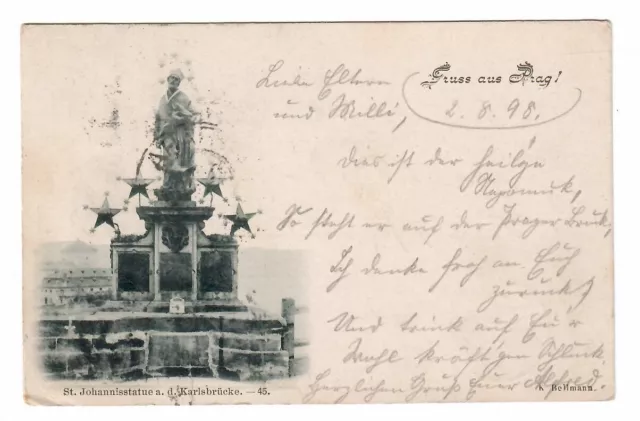 Gruss aus Prag!
2. 8. 98.
Liebe Eltern
und Willi,
Dies ist der heilge
Nepomuk,
So steht er auf der Prager Bruk,
Ich denke froh an Euch
zurück,
Und trink auf Euer
Wohl kräftigen Schluck.
Herzlichen Gruß Euer Alfred.
St. Johannisstatue a. d. Karlsbrücke. — 45.
Bellmann.